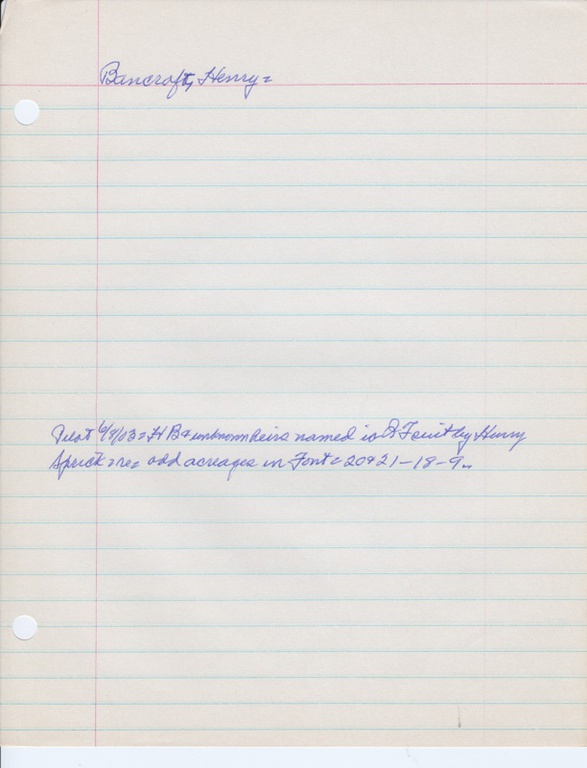 Bancroft, Henry =
Pilot 6/9/03 = HB & unknown heirs named in QT suit by Henry
Spuck = re = odd acreages in Font = 20 & 21-18-9..